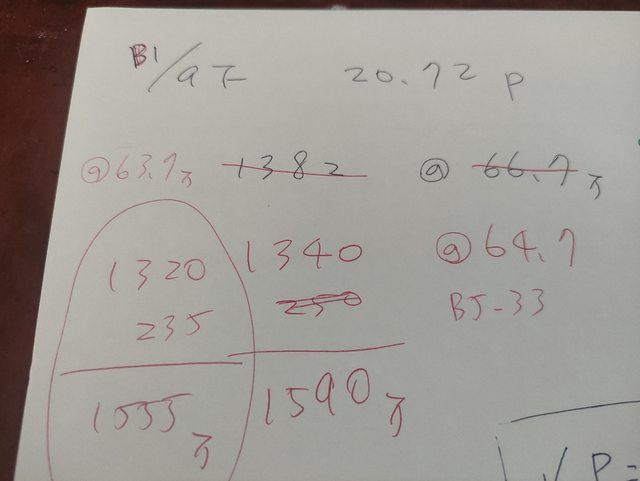 B1/9F 20.72 P
@63.7万 1382 @ 66.7万
1320 1340 @64.7
235 250 B5-33
1555万 1590万
√ P=